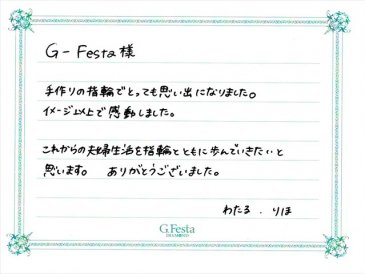 G-Festa様
手作りの指輪でとっても思い出になりました。
イメージ以上で感動しました。
これからの夫婦生活を指輪とともに歩んでいきたいと
思います。 ありがとうございました。
わたる . りほ
G.Festa